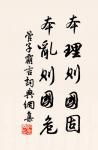 本理則國固
本亂則國危
管子霸言詞典網集